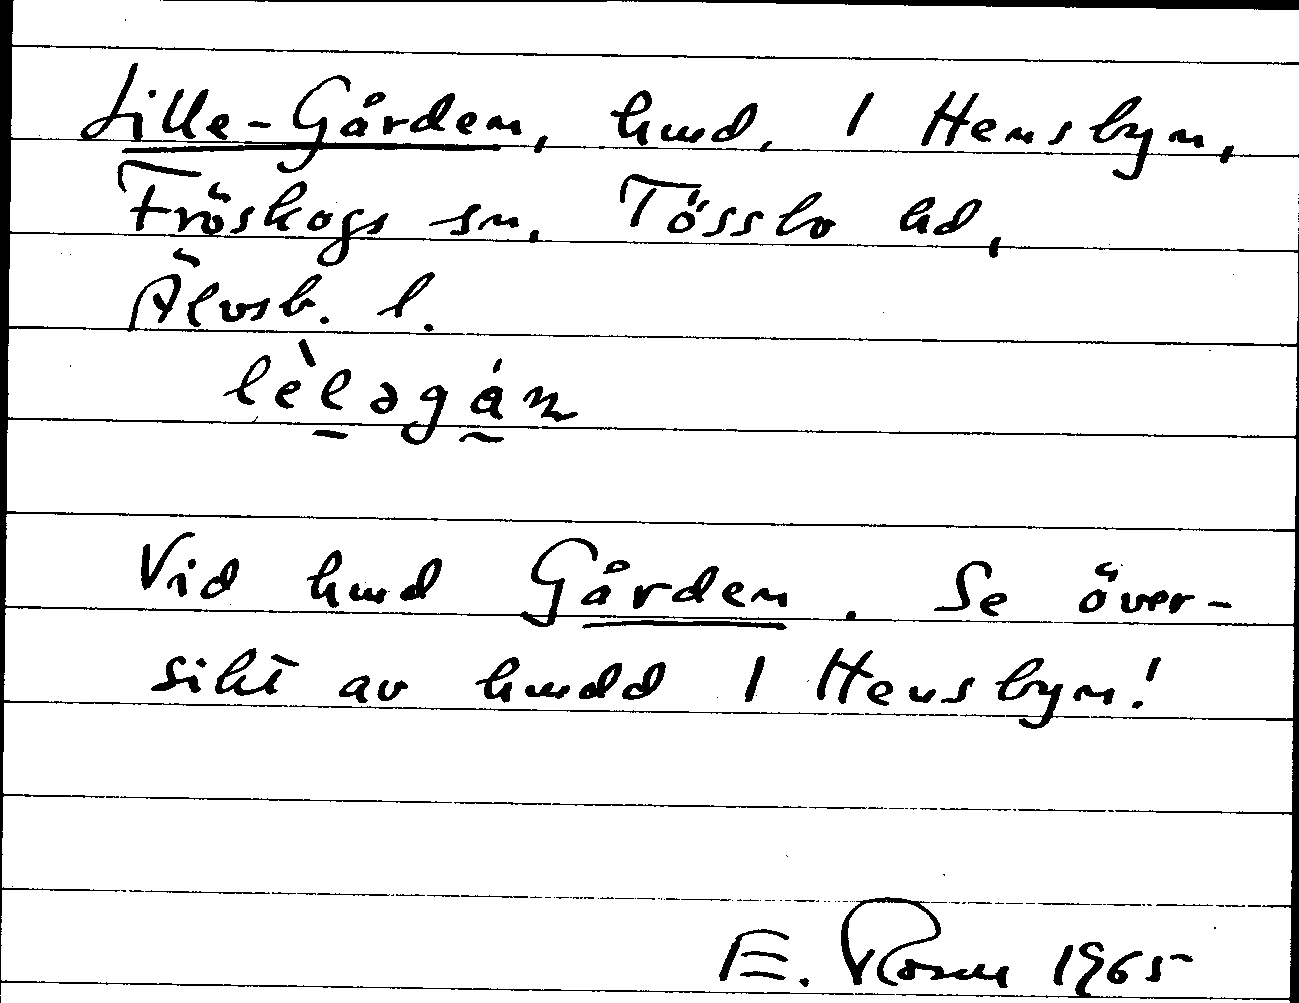 Lille-Gården, hmd, 1 Hensbyn,
Fröskogs sn. Tössbo hd,
Älvsb. l.
lèləgán
Vid hmd Gården. Se över-
sikt av hmdd 1 Hensbyn!
E. Rosen 1965